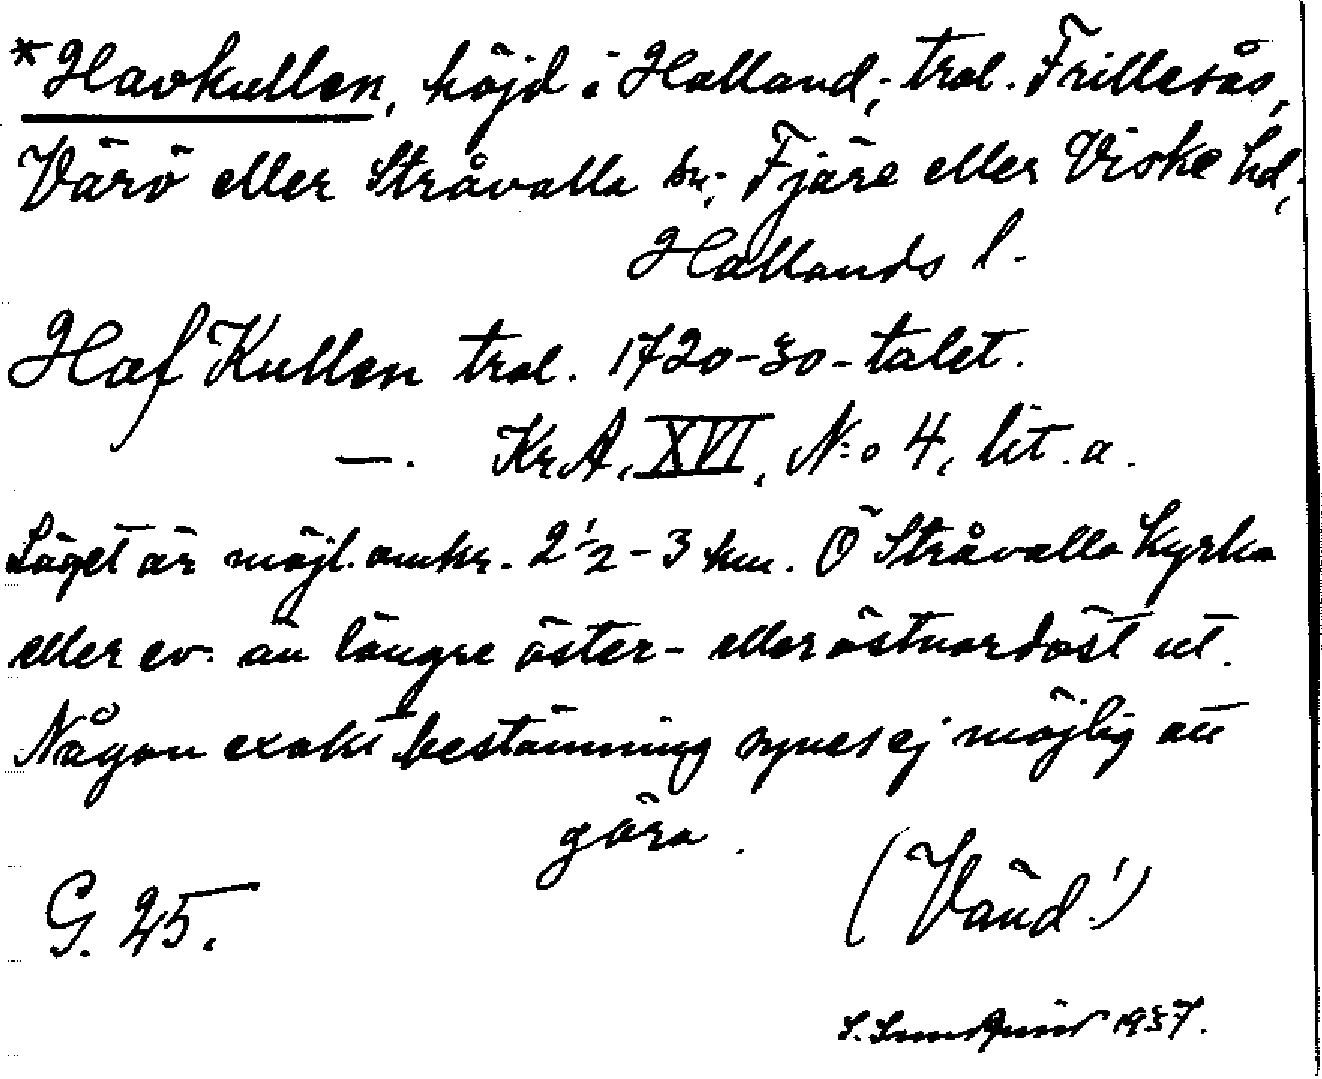 *Havkullen, höjd i Halland; trol. Frillesås,
Värö eller Stråvalla sn; Fjäre eller Viske hd,
Hallands l.
Haf Kullen trol. 1720-30-talet.
—. KrA, XVI, N:o 4, lit. a.
Läget är möjl. omkr. 2 1/2 - 3 km. Ö Stråvalla kyrka
eller ev. än längre öster- eller östnordöst ut.
Någon exakt bestämning synes ej möjlig att
göra.
G. 25.
(Vänd!)
1937.